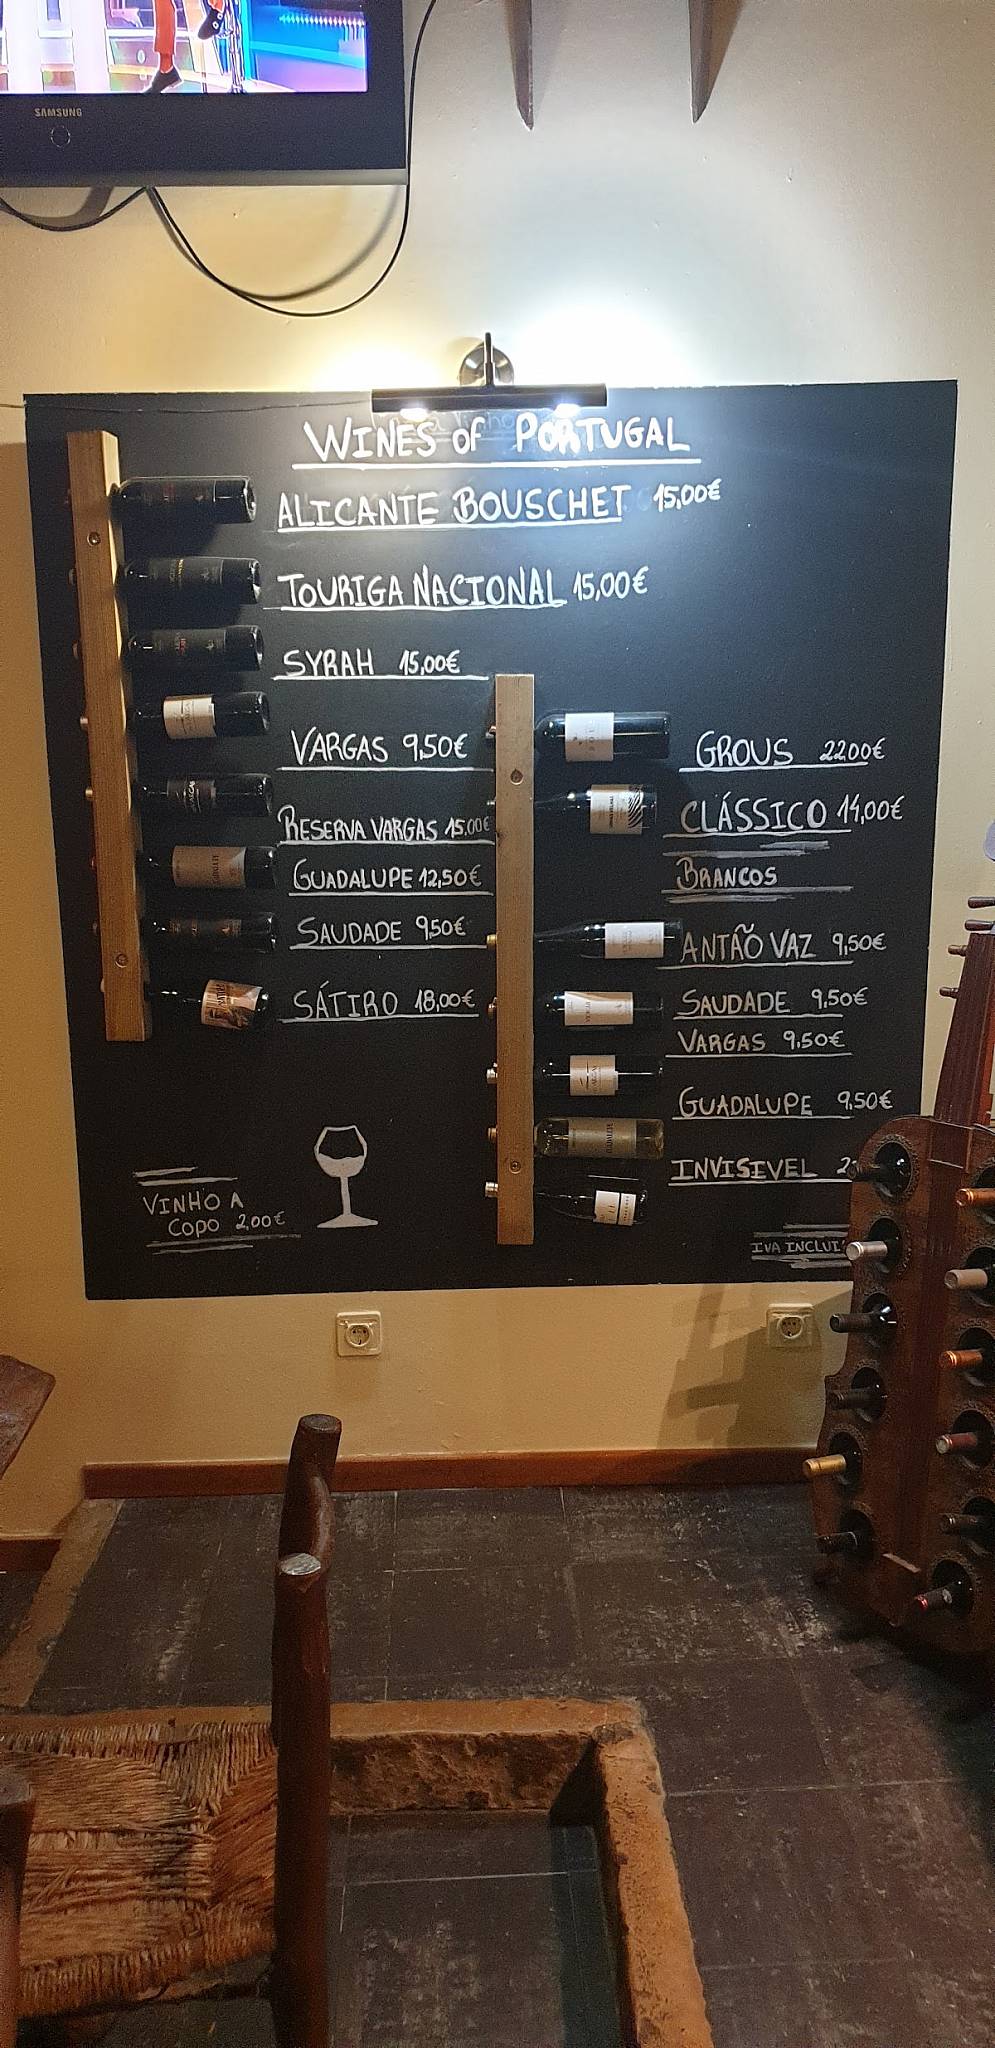 SAMSUNG
WINES of PORTUGAL
ALICANTE BOUSCHET 15,00€
TOURIGA NACIONAL 15,00€
SYRAH 15,00€
VARGAS 9,50€
RESERVA VARGAS 15,00€
GUADALUPE 12,50€
SAUDADE 9,50€
SÁTIRO 18,00€
VINHO A
COPO 2,00€
GROUS 22,00€
CLÁSSICO 14,00€
BRANCOS
ANTÃO VAZ 9,50€
SAUDADE 9,50€
VARGAS 9,50€
GUADALUPE 9,50€
INVISIVEL
IVA